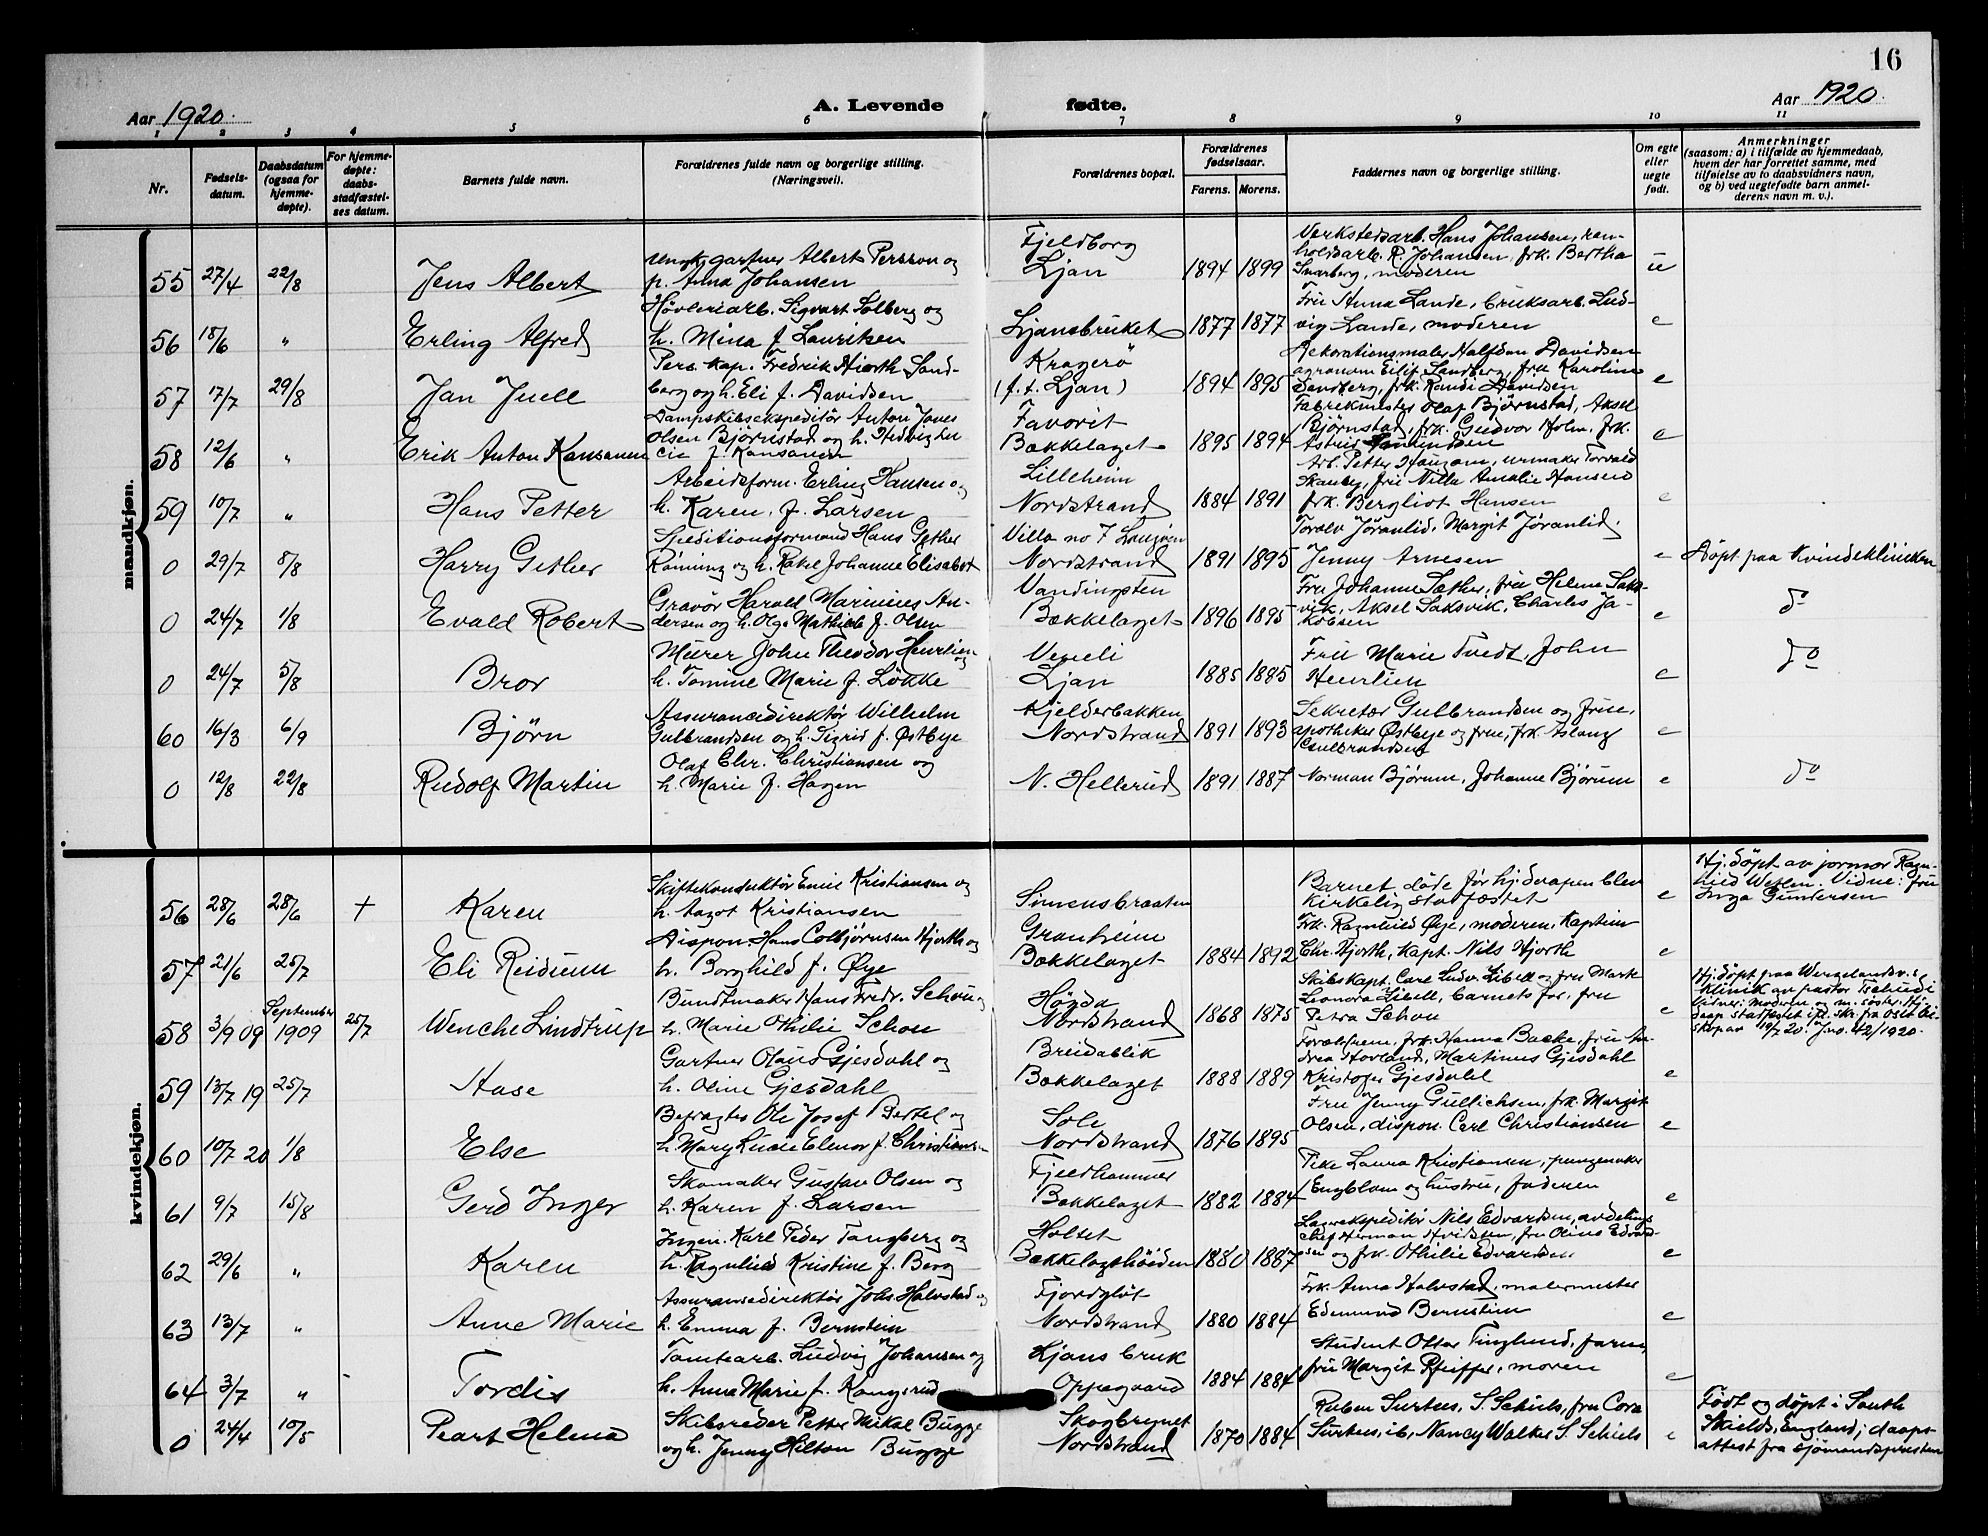 16
Aar 1920.
A. Levende
fødte.
Aar 1920.
1 2 3 4 5 6 7 8 9 10 11
Nr.
Fødsels-
datum.
Daabsdatum
(ogsaa for
hjemme-
døpte).
For hjemme-
døpte:
daabs-
stadfæstel-
ses datum.
Barnets fulde navn.
Forældrenes fulde navn og borgerlige stilling.
(Næringsvei).
Forældrenes bopæl.
Forældrenes
fødselsaar.
Farens. Morens.
Faddernes navn og borgerlige stilling.
Om egte
eller
uegte
født.
Anmerkninger
(saasom: a) i tilfælde av hjemmedaab,
hvem der har forrettet samme, med
tilføielse av to daabsvidners navn,
og b) ved uegtefødte barn anmel-
derens navn m. v.).
mandkjøn.
55 27/4 22/8 Jens Albert
gartner Albert Persson og
p. Anna Johansen
Fjeldborg
Ljan
1894 1899
Verkstedsarb. Hans Johansen, ren-
holdsarb. R. Johansen, frk. Bertha
moderen
u
56 18/6 " Erling Alfred
Høvleriarb. Sigvart Solberg og
h. Mina f. Lauritzen
Ljansbruket
1877 1877
Fru Anna Lande, bruksarb. Lud-
vig Lande, moderen
e
57 17/7 29/8 Jan Juell
Pers. kap. Fredrik Hiorth Sand-
berg og h. Eli f. Davidsen
Kragerö
(f. t. Ljan)
1894 1895
Dekorationsmaler Halfdan Davidsen
agronom Eilif Sandberg, fru Karoline
Sandberg, frk. Randi Davidsen
e
58 12/6 " Erik Anton Kansanen
Dampskibsekspeditör Anton Jones
Olsen Björnstad og h. Hedvig Lu-
cie f. Kansanen
Favorit
Bækkelaget
1895 1894
Fabrikmester Olaf Björnstad, Aksel
Björnstad, frk. Gudvor Holm, frk.
Astrid
e
59 10/7 " Hans Petter
Arbeidsform. Erling Hansen og
h. Karen, f. Larsen
Lilleheim
Nordstrand
1884 1891
Arb. Petter Haugom, urmaker Torvald
Skauby, fru Nilla Amalie Hansen
frk. Bergliot Hansen
e
0 29/7 8/8 Harry Gether
Speditionsformand Hans Gether
Rönning og h. Rakel Johanne Elisabet
Villa no 7
Nordstrand
1891 1895
Toralv Jöranlid, Margit Jöranlid,
Jenny Arnesen
e
Döpt paa Kvindeklinikken
0 24/7 1/8 Evald Robert
Gravör Harald Marinius An-
dersen og h. Olga Mathilde f. Olsen
Vandingsten
Bækkelaget
1896 1895
Fru Johanne Sæther, fru Helene Saks-
vik, Aksel Saksvik, Charles Ja-
kobsen
e
do
0 24/7 5/8 Bror
Murer John Theodor Heurlien og
h. Tomine Marie f. Lökke
Ljan
1885 1885
Fru Marie Tvedt, John
Heurlien
e
do
60 16/3 6/9 Björn
Assurancedirektör Wilhelm
Gulbrandsen og h. Sigrid f. Østbye
Kjelderbakken
Nordstrand
1891 1893
Sekretær Gulbrandsen og frue,
apotheker Østbye og frue, frk. Aslaug
Gulbrandsen
e
0 12/8 22/8 Rudolf Martin
Olaf Chr. Christiansen og
h. Marie f. Hagen
N. Hellerud
1891 1887
Norman Bjørum, Johanne Bjørum
e
do
kvindekjøn.
56 28/6 28/6 + Karen
Skiftekonduktör Emil Kristiansen og
h. Aagot Kristiansen
Simensbraaten
Barnet döde før hj.daapen blev
kirkelig stadfæstet
e
Hj. döpt av jormor Ragn-
hild Vidne: fru
Inga Gundersen
57 21/6 25/7 Eli Reidunn
Dispon. Hans Colbjørnsen Hjorth og
h. Borghild f. Øye
Granheim
Bækkelaget
1884 1892
Frk. Ragnhild Øye, moderen, Kaptein
Chr. Hjorth, Kapt. Nils Hjorth
e
58 3/9 09 September 1909 25/7 Wenche Lindtrup
Buntmaker Hans Fredr. Schou og
h. Marie Othilie Schou
Høyda
Nordstrand
1868 1875
Skibskapt. Carl Ludv. Libell og fru
Leonora Libell, barnets far, fru
Petra Schou
e
Hj. döpt paa Wergelandsv.s
klinik av pastor
Vidner: moderen og
daap stadfæstet
10/7 20. Jno. 42/1920.
59 13/7 19 25/7 Aase
Gartner Olaus Gjesdahl og
h. Oline Gjesdahl
Breidablik
Bækkelaget
1888 1889
Forældrene, frk. Hanna Backe, fru An-
drea Hovland, Martinus Gjesdahl
Kristofer Gjesdahl
e
60 10/7 20 1/8 Else
Befragter Ole Josef Bertel og
h. Mary Lucie Elenor f. Christians-
Sole
Nordstrand
1876 1895
Fru Jenny Gullichsen, frk. Margit
Olsen, dispon. Carl Christiansen
e
61 9/7 15/8 Gerd Inger
Skomaker Gustav Olsen og
h. Karen f. Larsen
Fjeldhammer
Bækkelaget
1882 1884
Pike Laura Kristiansen, pungmaker
Engblom og hustru, faderen
e
62 29/6 " Karen
Ingen. Karl Peder Tangberg og
h. Ragnhild Kristine f. Berg
Holtet
Bækkelagshöiden
1880 1887
Lagerekspeditör Nils Edvardsen, avdelings-
chef Herman fru Oline Edvard-
sen og frk. Othilie Edvardsen
e
63 13/7 " Anne Marie
Assurancedirektör Johs. Halvstad og
h. Emma f. Bernstein
Fjordgløt
Nordstrand
1880 1884
Frk. Anna Halvstad, malermester
Edmund Bernstein
e
64 3/7 " Tordis
Tomtearb. Ludvig Johansen og
h. Anna Marie f. Kongsrud
Ljans bruk
Oppegaard
1884 1884
Student Ottar Tinglund, faren,
fru Margit Pfeiffer, moren
e
0 24/4 10/5 Pearl Helena
Skibsreder Petter Mikal Bugge
og h. Jenny Hilton Bugge
Skogbrynet
Nordstrand
1870 1884
Ruben Surtees, S. Schiels, fru Cora
Surtees, ib, Nancy Walker S. Schiels
e
Født og døpt i South
Skields, England; daaps-
attest fra sjömandspresten